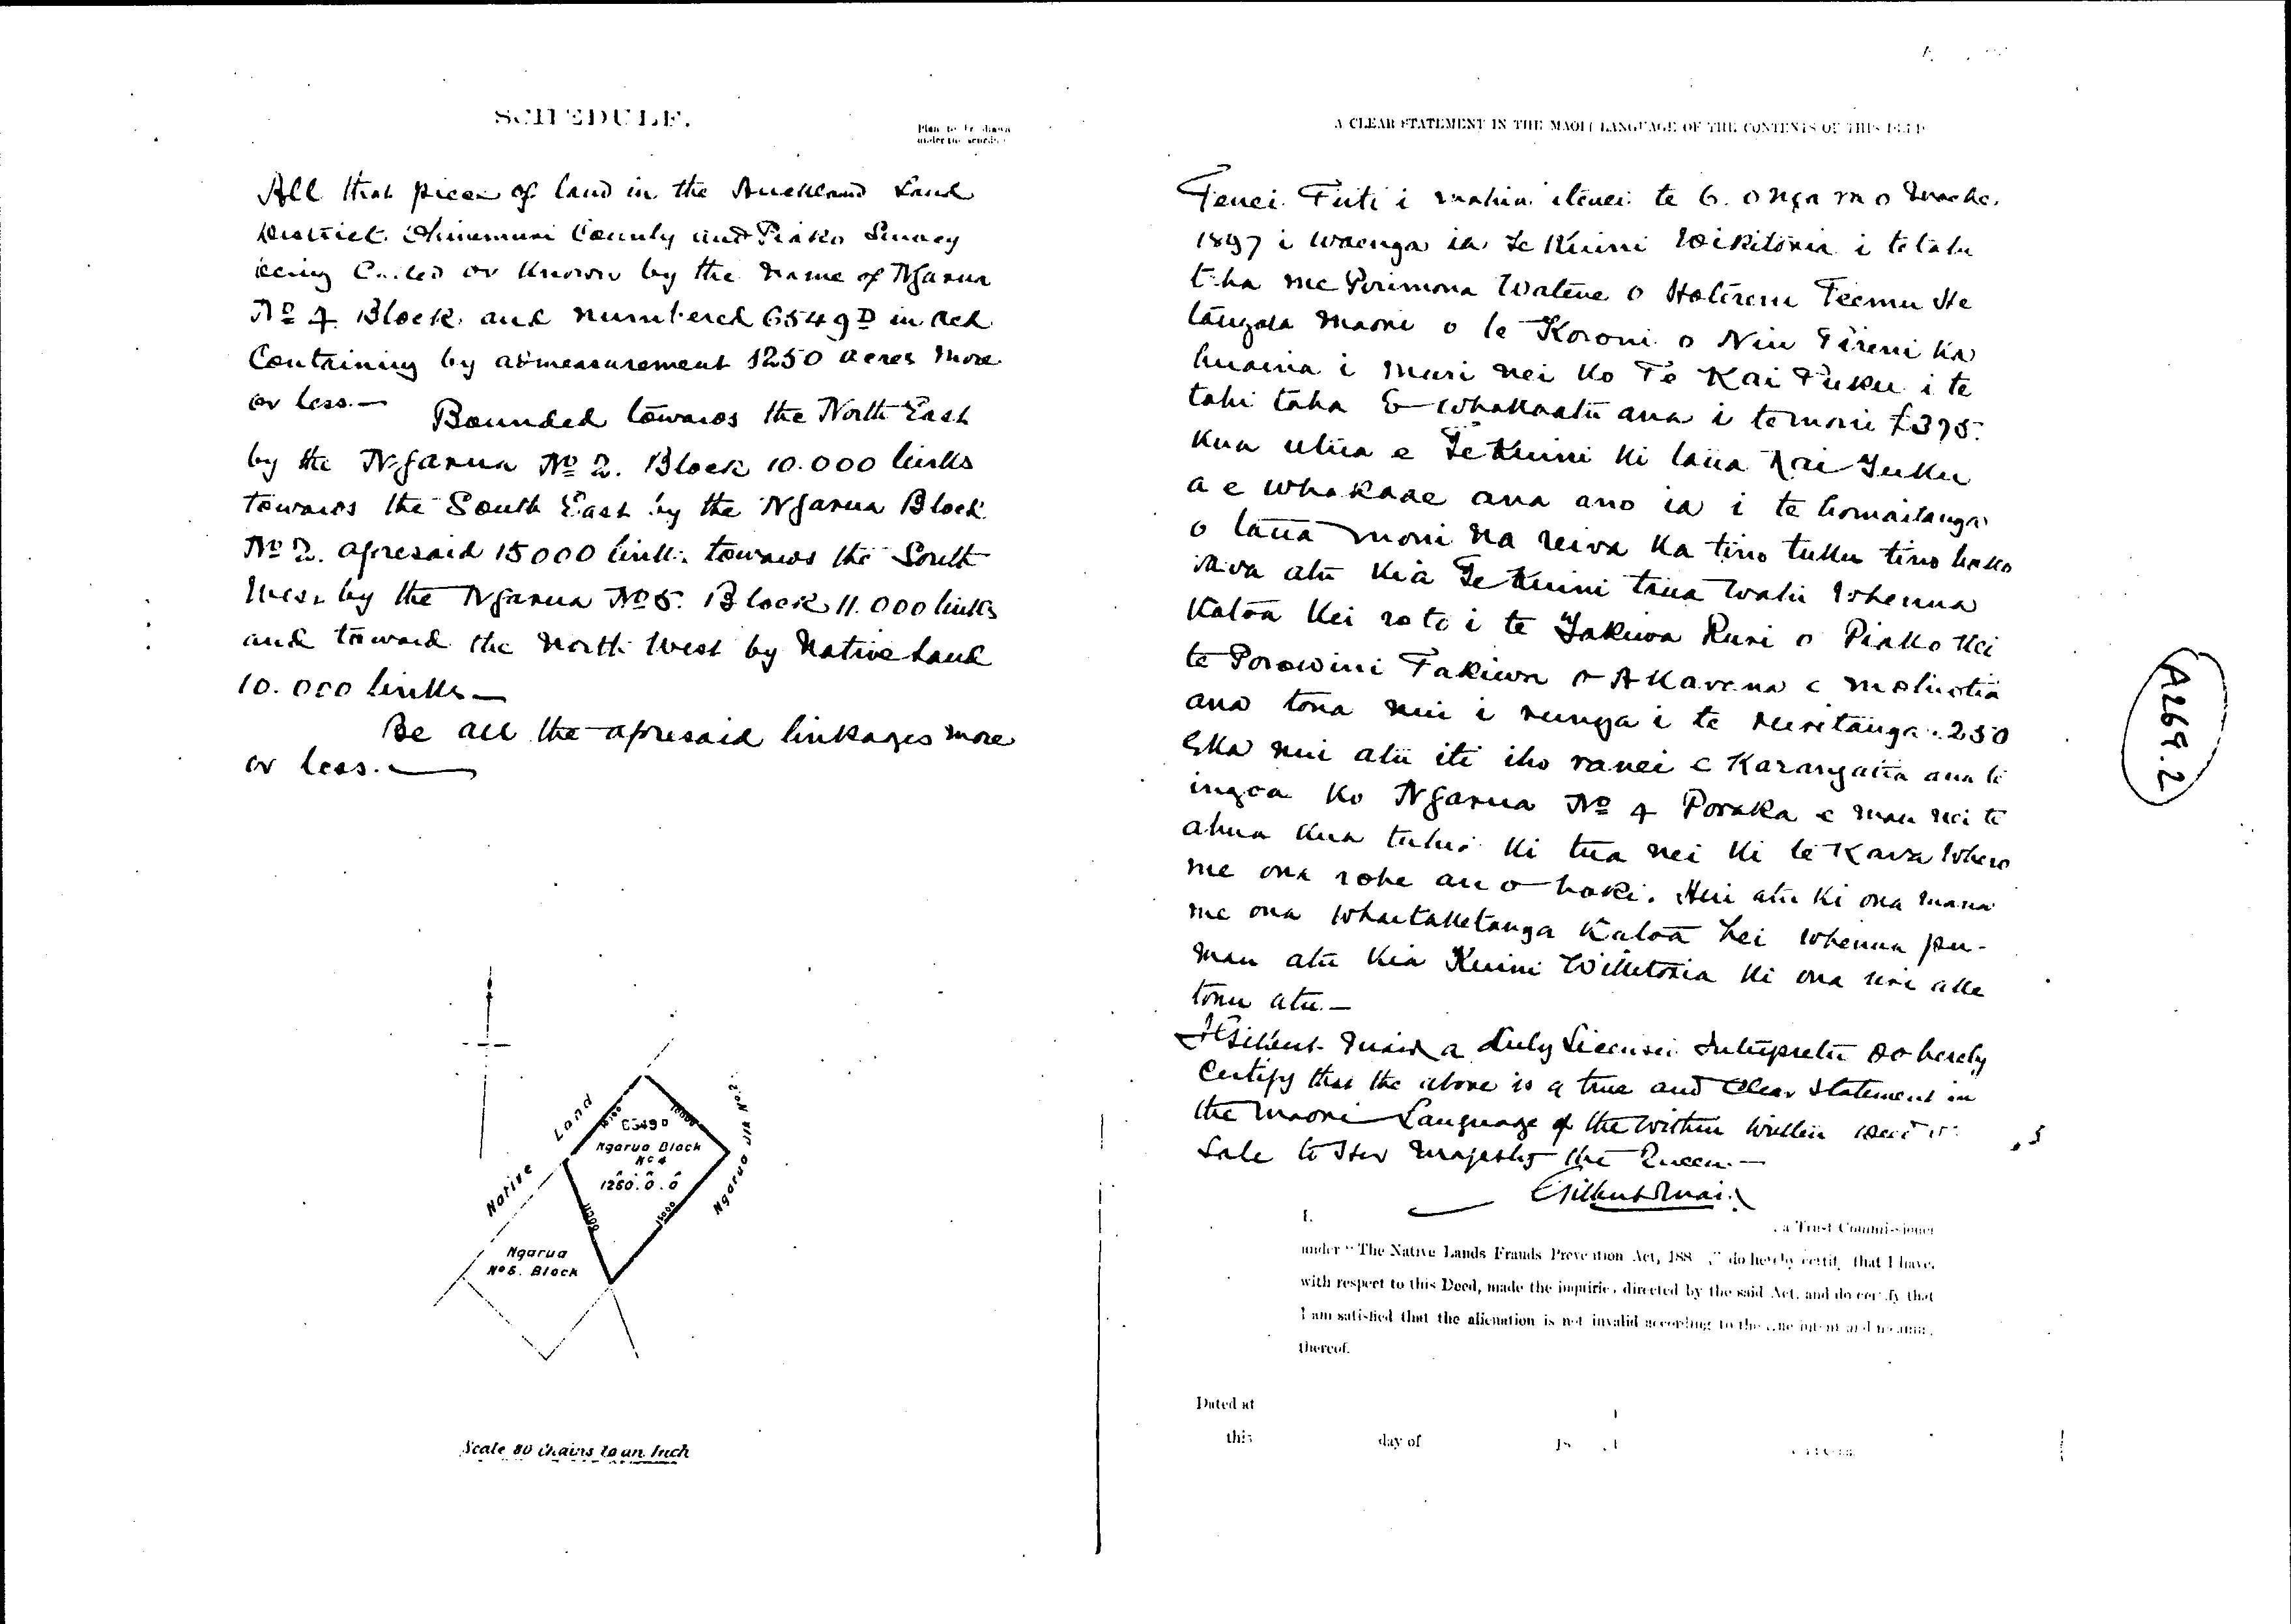 SCHEDULE.
Plan to be drawn
under the
All that piece of land in the Auckland Land
District Ohinemuri County and Piako Survey
being Called or Known by the name of Ngarua
No 4 Block and numbered 6549D in Red
Containing by admeasurement 1250 acres more
or less.— Bounded towards the North East
by the Ngarua No 2. Block 10.000 links
towards the South East by the Ngarua Block
No 2. aforesaid 15000 links towards the South
West by the Ngarua No 5. Block 11.000 links
and toward the North West by Native Land
10.000 links—
Be all the aforesaid linkages more
or less.—
Native Land
6549D
Ngarua Block
No 4
A. R. P.
1250.0.0
10000
11000
15000
Ngarua No 2.
Ngarua
No 5. Block
Scale 80 Chains to an Inch
A CLEAR STATEMENT IN THE MAORI LANGUAGE OF THE CONTENTS OF THIS DEED
Tenei Tiiti i mahia itenei te 6. o nga ra o Maehe.
1897 i waenga ia Te Kuini Wikitoria i tetahi
taha me Pirimona Watene o Hotereni Teemu He
tangata maori o te Koroni o Niu Tireni ka
huaina i muri nei ko Te Kai Tuku i te
tahi taha E whakaatu ana i te moni £375.
Kua utua e Te Kuini ki taua Kai Tuku
a e whakaae ana ano ia i te homaitanga
o taua moni na reira Ka tino tuku tino hoko
rawa atu kia Te Kuini taua wahi whenua
Katoa Kei roto i te Takiwa Ruri o Piako Kei
te Porowini Takiwa o Akarana e mohiotia
ana tona nui i runga i te ruritanga 1250
Eka nui atu iti iho ranei e Karangatia ana te
ingoa ko Ngarua No 4 Poraka e mau nei te
ahua kua tuhia ki tua nei ki te Kara Whero
me ona rohe ano hoki. Hui atu ki ona mana
me ona whaitaketanga Katoa hei whenua pu-
mau atu kia Kuini Wikitoria ki ona uri ake
tonu atu.—
I Gilbert Mair a duly Licensed Interpreter do hereby
Certify that the above is a true and Clear Statement in
the Maori Language of the within written Deed of
Sale to Her Majesty the Queen.—
Gilbert Mair
I, , a Trust Commissioner
under "The Native Lands Frauds Prevention Act, 188 ," do hereby certify that I have,
with respect to this Deed, made the inquiries directed by the said Act, and do certify that
I am satisfied that the alienation is not invalid according to the true intent and meaning
thereof.
Dated at
this day of 18
A269.2